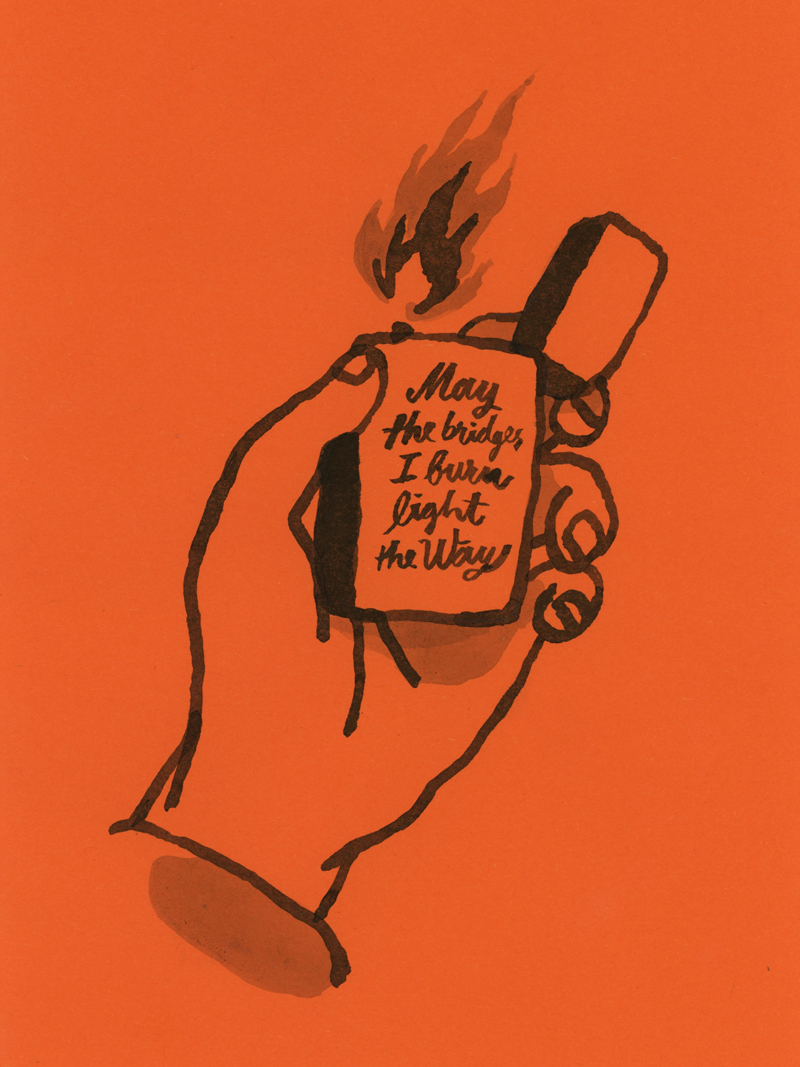 May
the bridges
I burn
light
the Way